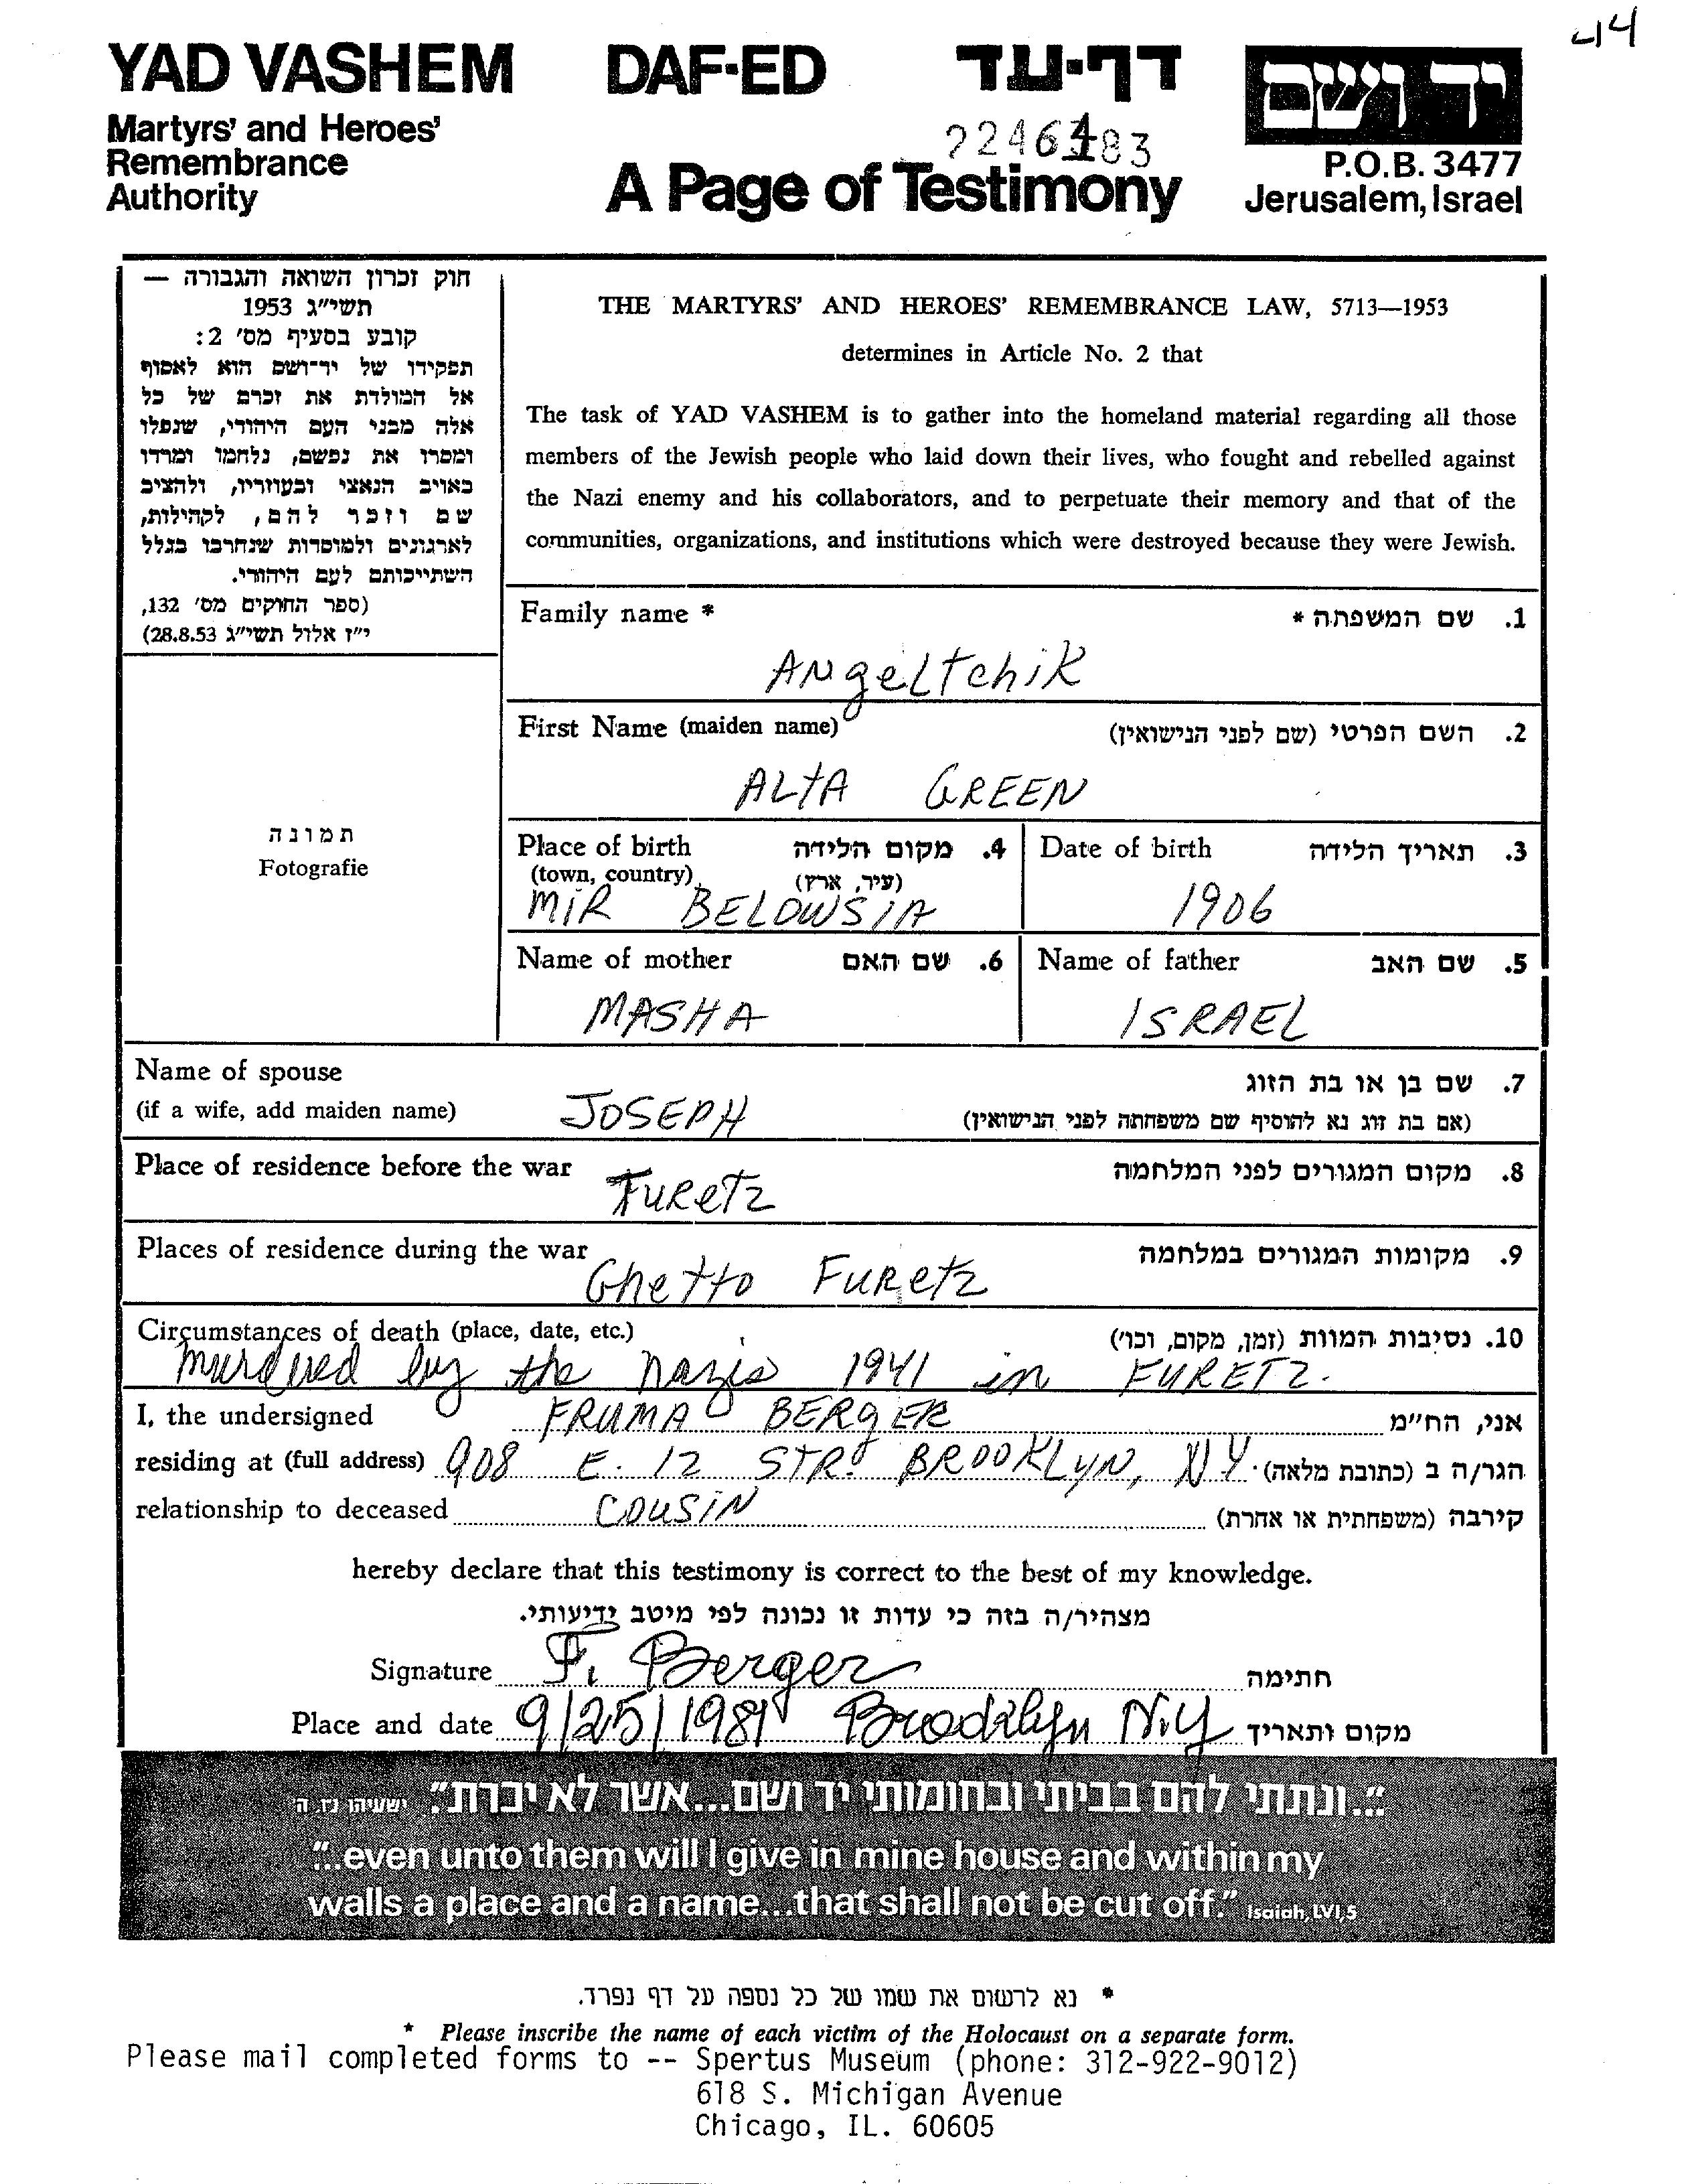 44
YAD VASHEM DAF-ED דף-עד יד ושם
Martyrs' and Heroes'
Remembrance
Authority
A Page of Testimony
P.O.B. 3477
Jerusalem, Israel
חוק זכרון השואה והגבורה —
תשי"ג 1953
קובע בסעיף מס' 2:
תפקידו של יד-ושם הוא לאסוף
אל המולדת את זכרם של כל
אלה מבני העם היהודי, שנפלו
ומסרו את נפשם, נלחמו ומרדו
באויב הנאצי ובעוזריו, ולהציב
שם וזכר להם, לקהילות,
לארגונים ולמוסדות שנחרבו בגלל
השתייכותם לעם היהודי.
(ספר החוקים מס' 132,
י"ז אלול תשי"ג 28.8.53)
THE MARTYRS' AND HEROES' REMEMBRANCE LAW, 5713—1953
determines in Article No. 2 that
The task of YAD VASHEM is to gather into the homeland material regarding all those
members of the Jewish people who laid down their lives, who fought and rebelled against
the Nazi enemy and his collaborators, and to perpetuate their memory and that of the
communities, organizations, and institutions which were destroyed because they were Jewish.
תמונה
Fotografie
Family name * 1. שם המשפחה *
ANgeLTchiK
First Name (maiden name) 2. השם הפרטי (שם לפני הנישואין)
ALTA GREEN
Place of birth 4. מקום הלידה Date of birth 3. תאריך הלידה
(town, country) (עיר, ארץ)
MIR BELOWSIA 1906
Name of mother 6. שם האם Name of father 5. שם האב
MASHA ISRAEL
Name of spouse 7. שם בן או בת הזוג
(if a wife, add maiden name) JOSEPH (אם בת זוג נא להוסיף שם משפחתה לפני הנישואין)
Place of residence before the war TuReTz 8. מקום המגורים לפני המלחמה
Places of residence during the war Ghetto FuRetz 9. מקומות המגורים במלחמה
Circumstances of death (place, date, etc.) 10. נסיבות המוות (זמן, מקום, וכו')
Murdered by the nazis 1941 in FURETZ.
I, the undersigned FRUMA BERGER אני, הח"מ
residing at (full address) 908 E. 12 STR. BROOKLYN, NY. הגר/ה ב (כתובת מלאה)
relationship to deceased COUSIN קירבה (משפחתית או אחרת)
hereby declare that this testimony is correct to the best of my knowledge.
מצהיר/ה בזה כי עדות זו נכונה לפי מיטב ידיעותי.
Signature F. Berger חתימה
Place and date 9/25/1981 Brooklyn N.Y מקום ותאריך
"...ונתתי להם בביתי ובחומותי יד ושם...אשר לא יכרת". ישעיהו נו, ה'
"...even unto them will I give in mine house and within my
walls a place and a name...that shall not be cut off." Isaiah, LVI,5
* נא לרשום את שמו של כל נספה על דף נפרד.
* Please inscribe the name of each victim of the Holocaust on a separate form.
Please mail completed forms to -- Spertus Museum (phone: 312-922-9012)
618 S. Michigan Avenue
Chicago, IL. 60605